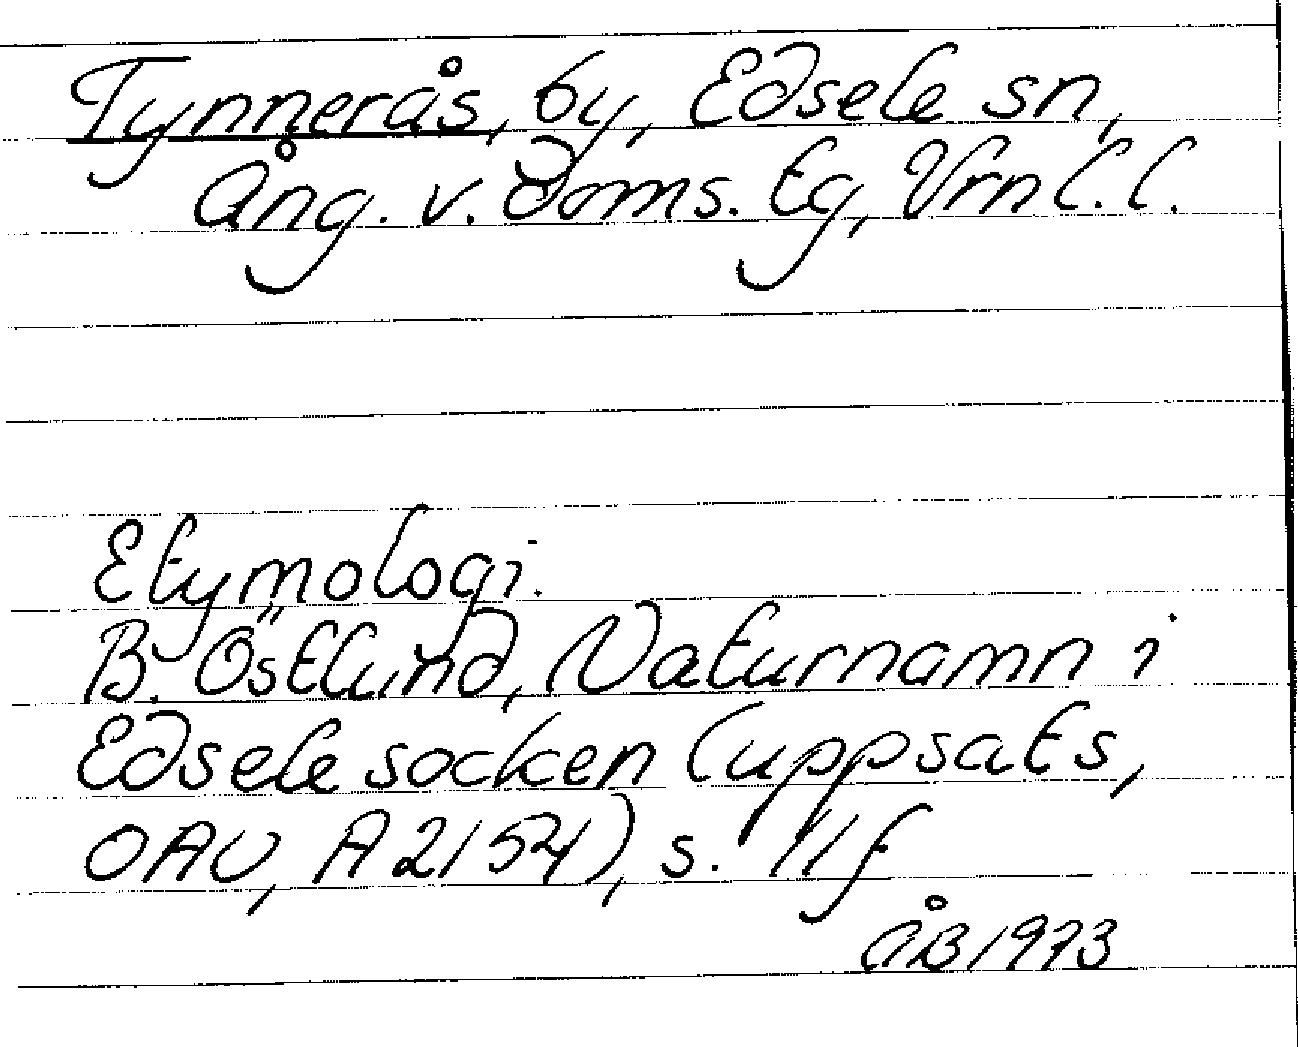 Tynnerås, by, Edsele sn,
Ång. v. doms. tg, Vrnl. l.
Etymologi.
B. Östlund, Naturnamn i
Edsele socken (uppsats,
OAU, A 2154), s. 11 f
ÅB 1973